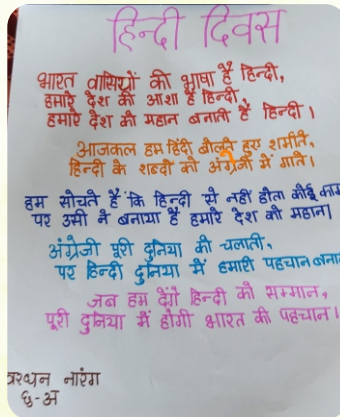 हिन्दी दिवस
भारत वासियों की भाषा है हिन्दी,
हमारे देश की आशा है हिन्दी,
हमारे देश को महान बनाती है हिन्दी।
आजकल हम हिंदी बोलते हुए शर्माते,
हिन्दी के शब्दों को अंग्रेजी में गाते।
हम सोचते हैं कि हिन्दी से नहीं होता कोई काम
पर उसी ने बनाया है हमारे देश को महान।
अंग्रेजी पूरी दुनिया को चलाती,
पर हिन्दी दुनिया में हमारी पहचान बना
जब हम देंगे हिन्दी को सम्मान,
पूरी दुनिया में होगी भारत की पहचान।
नारंग
६-अ